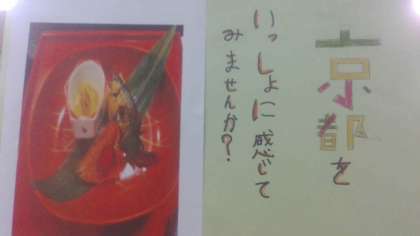 京都を
いっしょに感じて
みませんか?